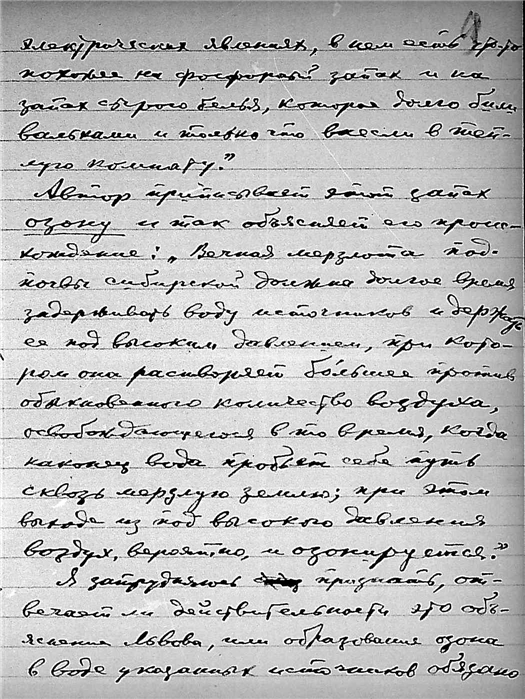 электрических явлениях, в нем есть что-то
похожее на фосфорный запах и на
запах сырого белья, которое долго били
вальками и только что внесли в теп-
лую комнату."
Автор приписывает этот запах
озону и так объясняет его проис-
хождение: „Вечная мерзлота под-
почвы сибирской должна долгое время
задерживать воду источников и держать
ее под высоким давлением, при кото-
ром она растворяет бо́льшее против
обыкновенного количество воздуха,
освобождающегося в то время, когда
наконец вода пробьет себе путь
сквозь мерзлую землю; при этом
выходе из под высокого давления
воздух, вероятно, и озонируется."
Я затрудняюсь признать, от-
вечает ли действительности это объ-
яснение Львова, или образование озона
в воде указанных источников обязано